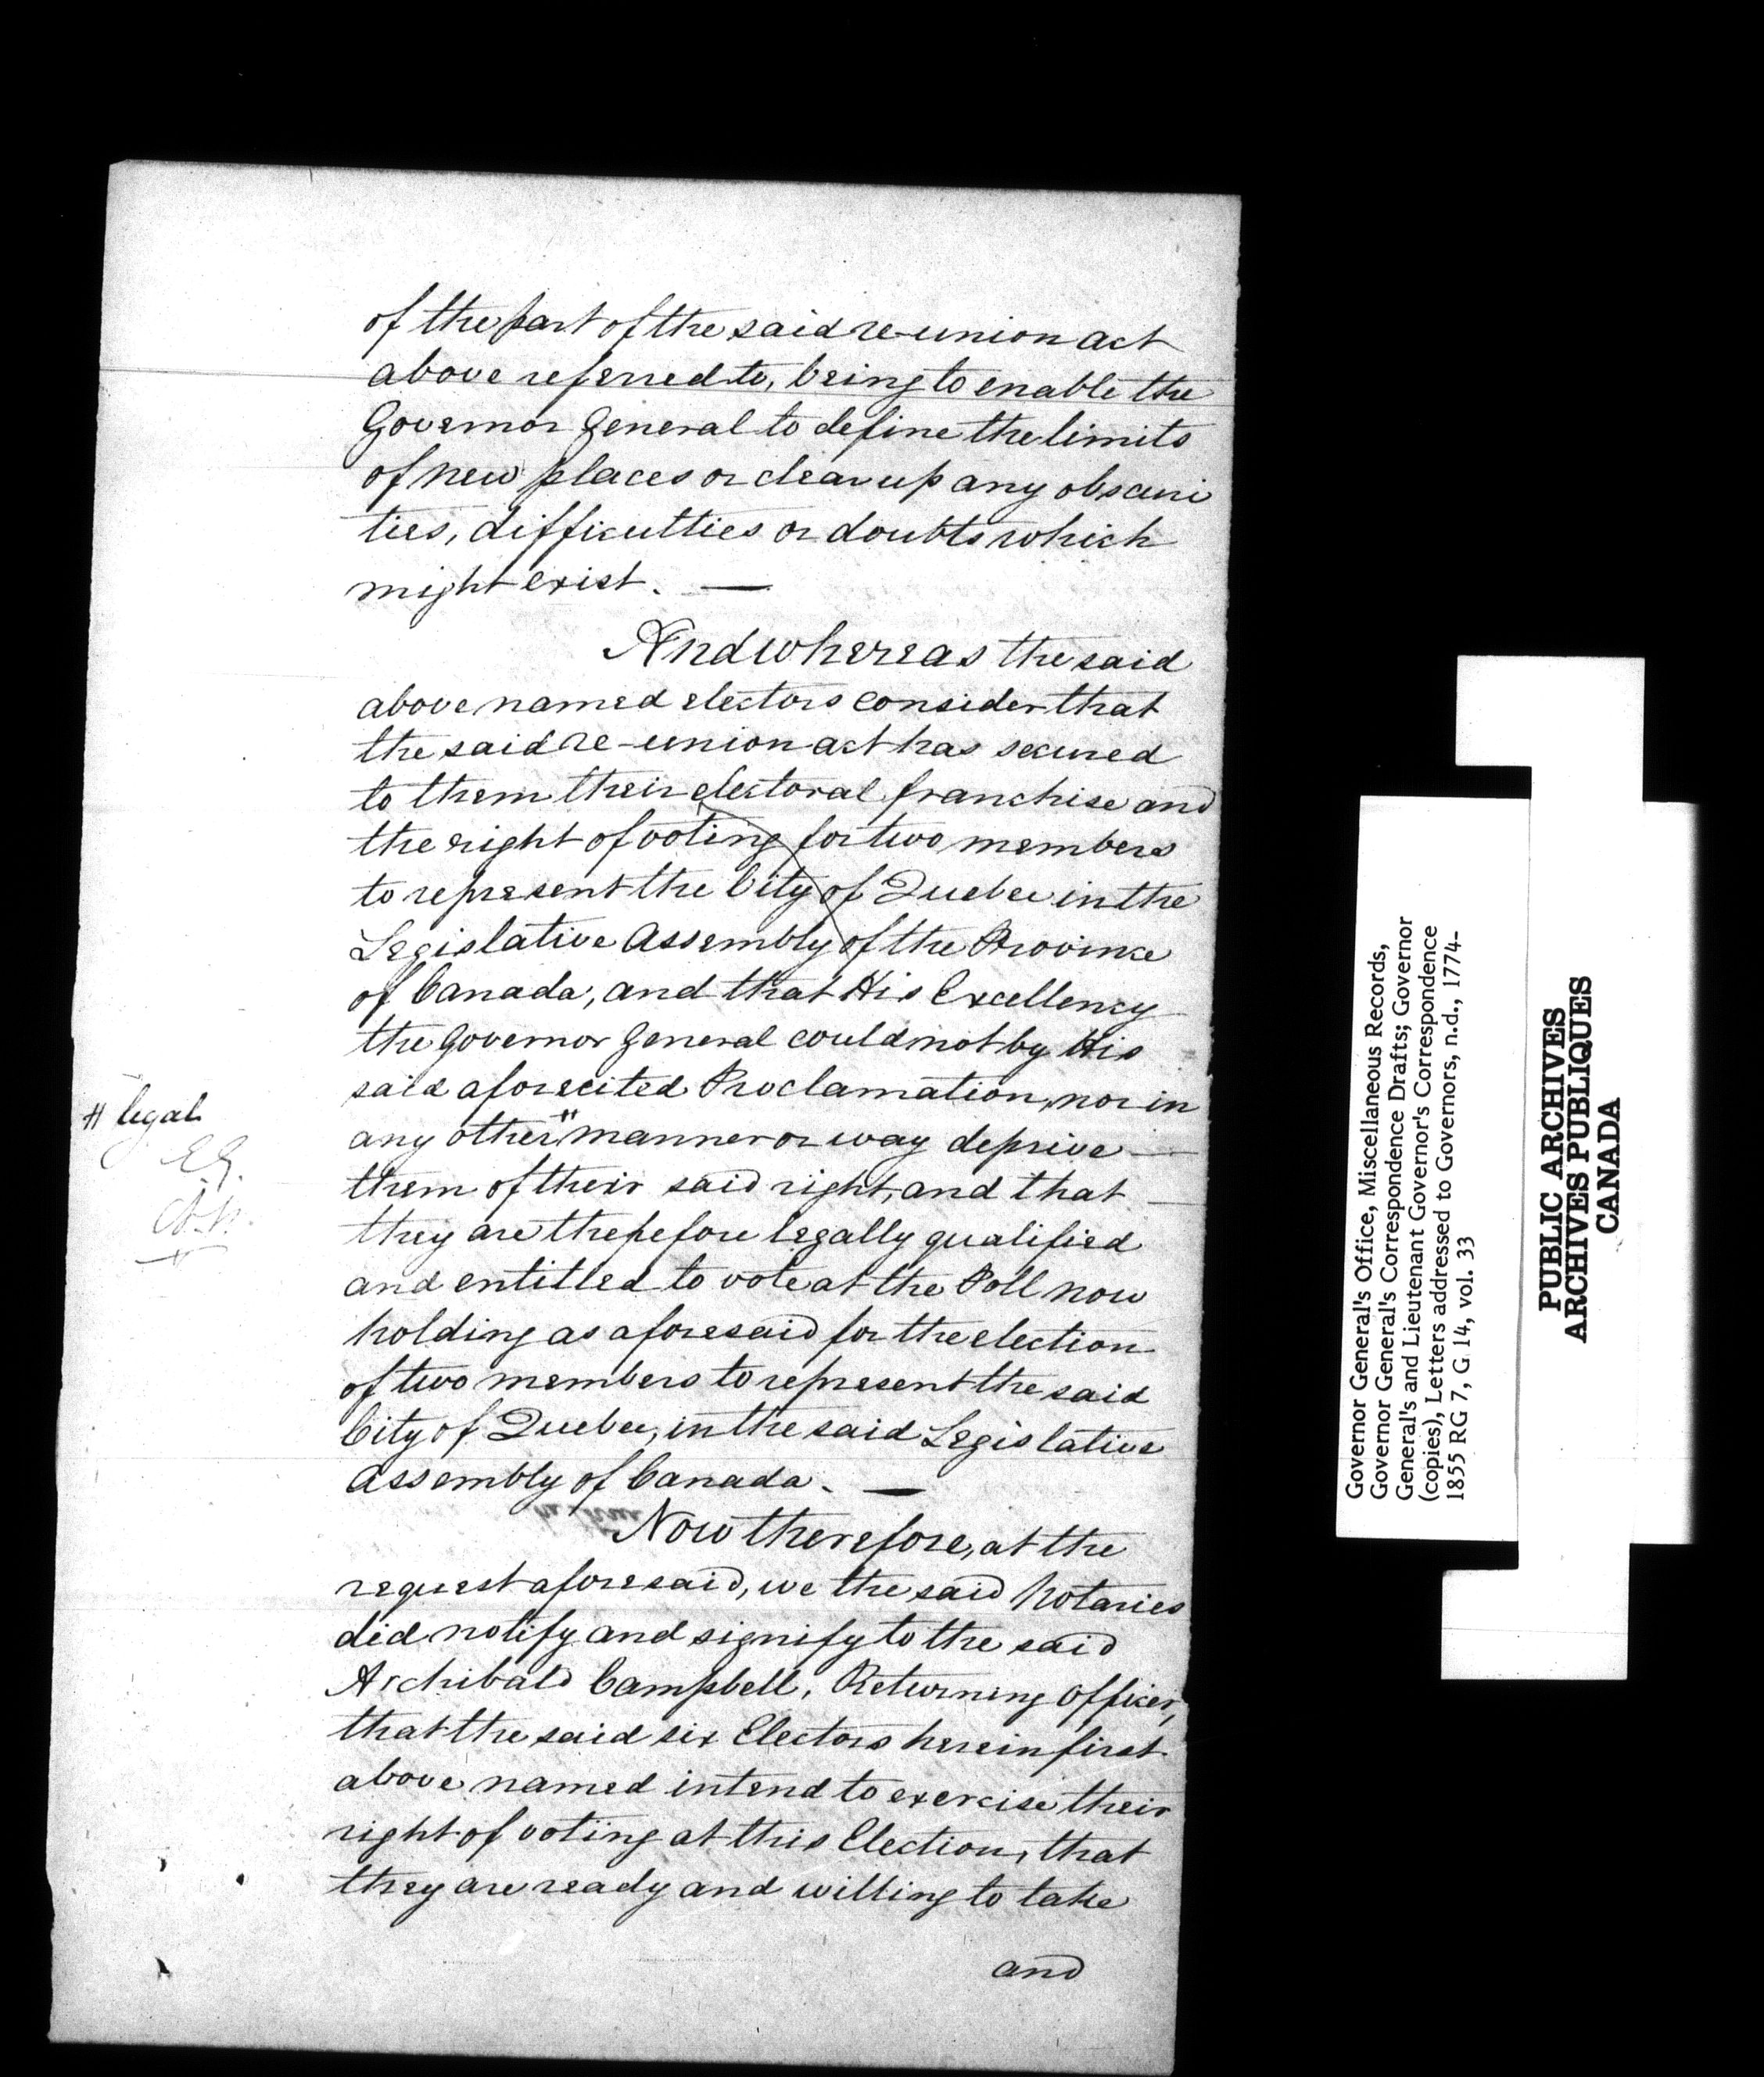 of the part of the said re-union act
above referred to, being to enable the
Governor General to define the limits
of new places or clear up any obscuri
ties, difficulties or doubts which
might exist. —
And whereas the said
above named electors consider that
the said re-union act has secured
to them their electoral franchise and
the right of voting for two members
to represent the City of Quebec in the
Legislative Assembly of the Province
of Canada, and that His Excellency
the Governor General could not by His
said aforecited Proclamation, nor in
# legal
any other # manner or way deprive —
them of their said right, and that —
they are therefore legally qualified
and entitled to vote at the Poll now
holding as aforesaid for the election
of two members to represent the said
City of Quebec, in the said Legislative
Assembly of Canada. —
Now therefore, at the
request aforesaid, we the said Notaries
did notify and signify to the said
Archibald Campbell, Returning Officer,
that the said six Electors herein first
above named intend to exercise their
right of voting at this Election, that
they are ready and willing to take
and
Governor General's Office, Miscellaneous Records,
Governor General's Correspondence Drafts; Governor
General's and Lieutenant Governor's Correspondence
(copies), Letters addressed to Governors, n.d., 1774-
1855 RG 7, G 14, vol. 33
PUBLIC ARCHIVES
ARCHIVES PUBLIQUES
CANADA